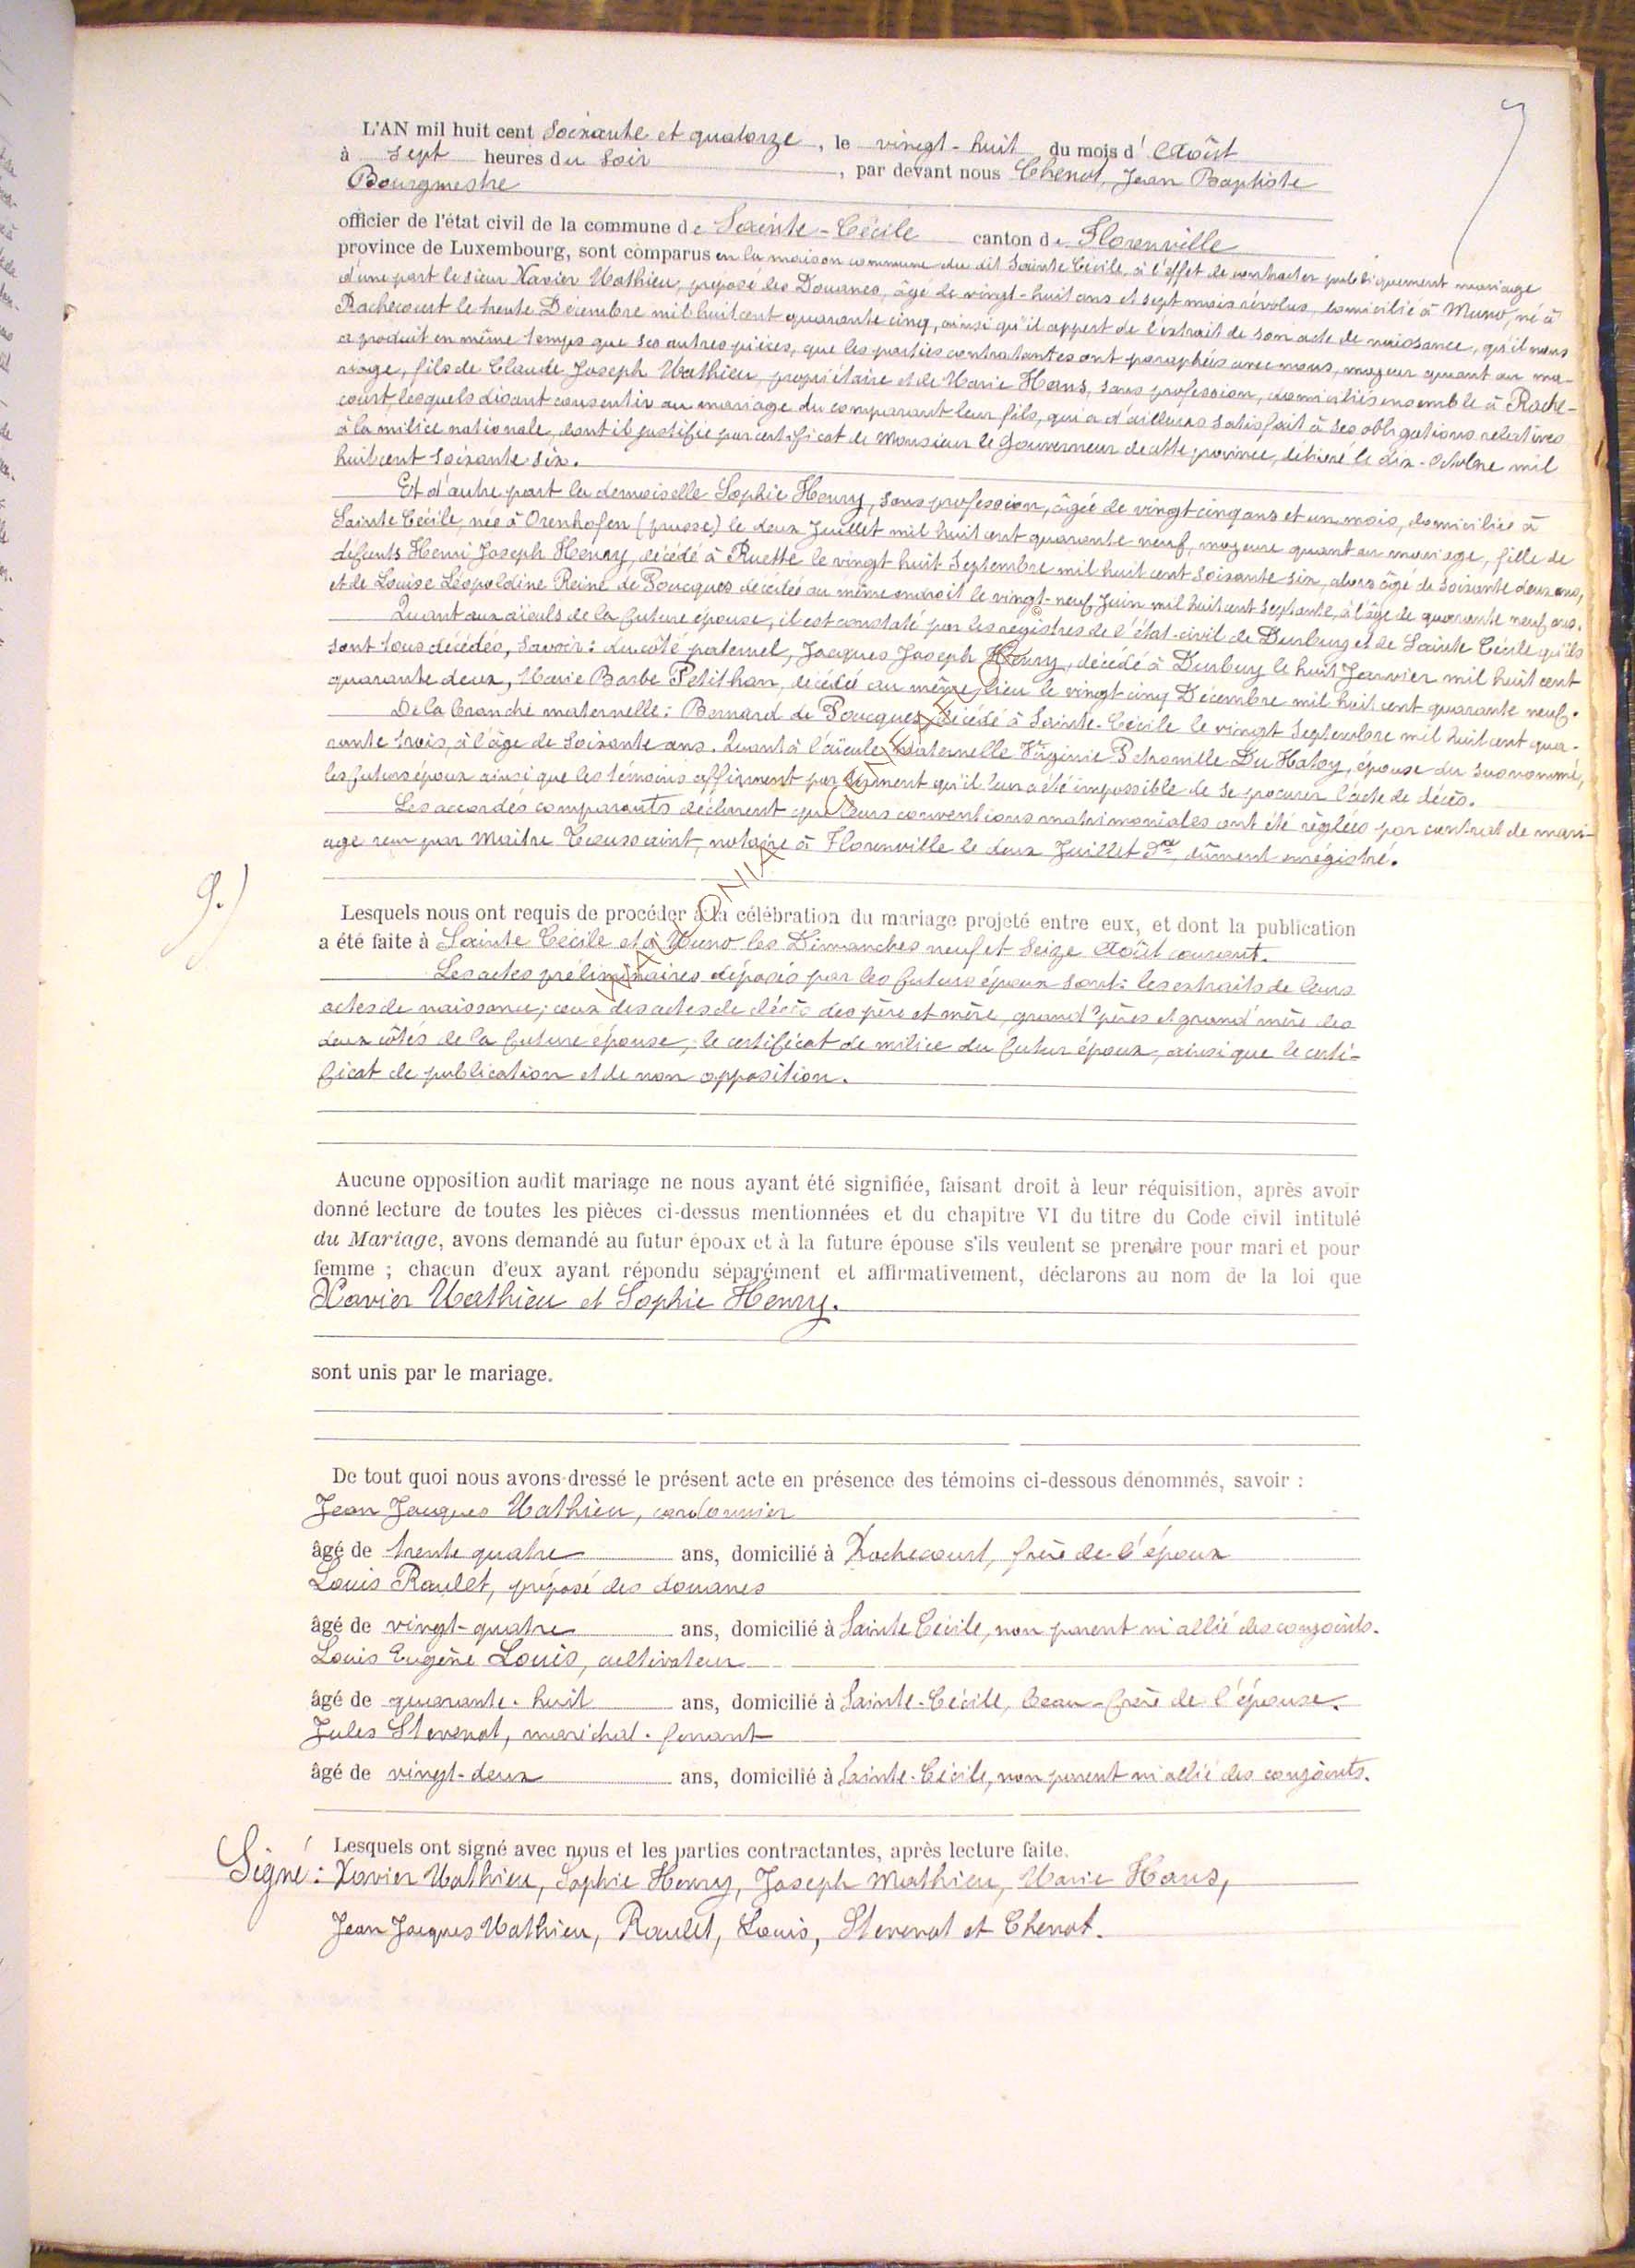 7
L'AN mil huit cent soixante et quatorze, le vingt-huit du mois d'Août
à sept heures du soir, par devant nous Chenot, Jean Baptiste
Bourgmestre
officier de l'état civil de la commune de Sainte-Cécile canton de Florenville
province de Luxembourg, sont comparus en la maison commune du dit Sainte Cécile, à l'effet de contracter publiquement mariage
d'une part le sieur Xavier Mathieu, préposé des Douanes, âgé de vingt-huit ans et sept mois révolus, domicilié à Muno, né à
Rachecourt le trente Décembre mil huit cent quarante cinq, ainsi qu'il appert de l'extrait de son acte de naissance, qu'il nous
a produit en même temps que ses autres pièces, que les parties contratantes ont paraphées avec nous, majeur quant au ma-
riage, fils de Claude Joseph Mathieu, propriétaire et de Marie Hans, sans profession, domiciliés ensemble à Rache-
court, lesquels disant consentir au mariage du comparant leur fils, qui a d'ailleurs satisfait à ses obligations relatives
à la milice nationale, dont il justifie par certificat de Monsieur le Gouverneur de cette province, délivré le dix-Octobre mil
huit cent soixante six.
Et d'autre part la demoiselle Sophie Henry, sans profession, âgée de vingt cinq ans et un mois, domiciliée à
Sainte Cécile, née à Orenhofen (prusse) le deux Juillet mil huit cent quarante neuf, majeure quant au mariage, fille de
défunts Henri Joseph Henry, décédé à Ruette le vingt huit Septembre mil huit cent soixante six, alors âgé de soixante deux ans,
et de Louise Léopoldine Reine de Poucques décédée au même endroit le vingt-neuf Juin mil huit cent septante, à l'âge de quarante neuf ans.
Quant aux aïeuls de la future épouse, il est constaté par les registres de l'état-civil de Durbuy et de Sainte Cécile qu'ils
sont tous décédés, savoir: du côté paternel, Jacques Joseph Henry, décédé à Durbuy le huit Janvier mil huit cent
quarante deux, Marie Barbe Petithan, décédée au même lieu le vingt cinq Décembre mil huit cent quarante neuf.
De la branche maternelle: Bernard de Poucques décédé à Sainte-Cécile le vingt Septembre mil huit cent qua-
rante trois, à l'âge de soixante ans. Quant à l'aïeule maternelle Virginie Petronille Du Hatoy, épouse du susnommé,
les futurs époux ainsi que les témoins affirment par serment qu'il leur a été impossible de se procurer l'acte de décès.
Les accordés comparants déclarent que leurs conventions matrimoniales ont été réglées par contrat de mari-
age reçu par Maître Toussaint, notaire à Florenville le deux Juillet der, dûment enrégistré.
9.)
Lesquels nous ont requis de procéder à la célébration du mariage projeté entre eux, et dont la publication
a été faite à Sainte Cécile et à Muno les Dimanches neuf et seize Août courant.
Les actes préliminaires déposés par les futurs époux sont: les extraits de leurs
actes de naissance; ceux des actes de décès des père et mère, grand'pères et grand'mère des
deux côtés de la future épouse; le certificat de milice du futur époux, ainsi que le certi-
ficat de publication et de non opposition.
Aucune opposition audit mariage ne nous ayant été signifiée, faisant droit à leur réquisition, après avoir
donné lecture de toutes les pièces ci-dessus mentionnées et du chapitre VI du titre du Code civil intitulé
du Mariage, avons demandé au futur époux et à la future épouse s'ils veulent se prendre pour mari et pour
femme ; chacun d'eux ayant répondu séparément et affirmativement, déclarons au nom de la loi que
Xavier Mathieu et Sophie Henry.
sont unis par le mariage.
De tout quoi nous avons dressé le présent acte en présence des témoins ci-dessous dénommés, savoir :
Jean Jacques Mathieu, cordonnier
âgé de trente quatre ans, domicilié à Rachecourt, frère de l'époux
Louis Raulet, préposé des douanes
âgé de vingt-quatre ans, domicilié à Sainte Cécile, non parent ni allié des conjoints.
Louis Eugène Louis, cultivateur
âgé de quarante-huit ans, domicilié à Sainte-Cécile, beau-frère de l'épouse.
Jules Stevenot, maréchal-ferrant
âgé de vingt-deux ans, domicilié à Sainte-Cécile, non parent ni allié des conjoints.
Lesquels ont signé avec nous et les parties contractantes, après lecture faite.
Signé: Xavier Mathieu, Sophie Henry, Joseph Mathieu, Marie Hans,
Jean Jacques Mathieu, Raulet, Louis, Stevenot et Chenot.